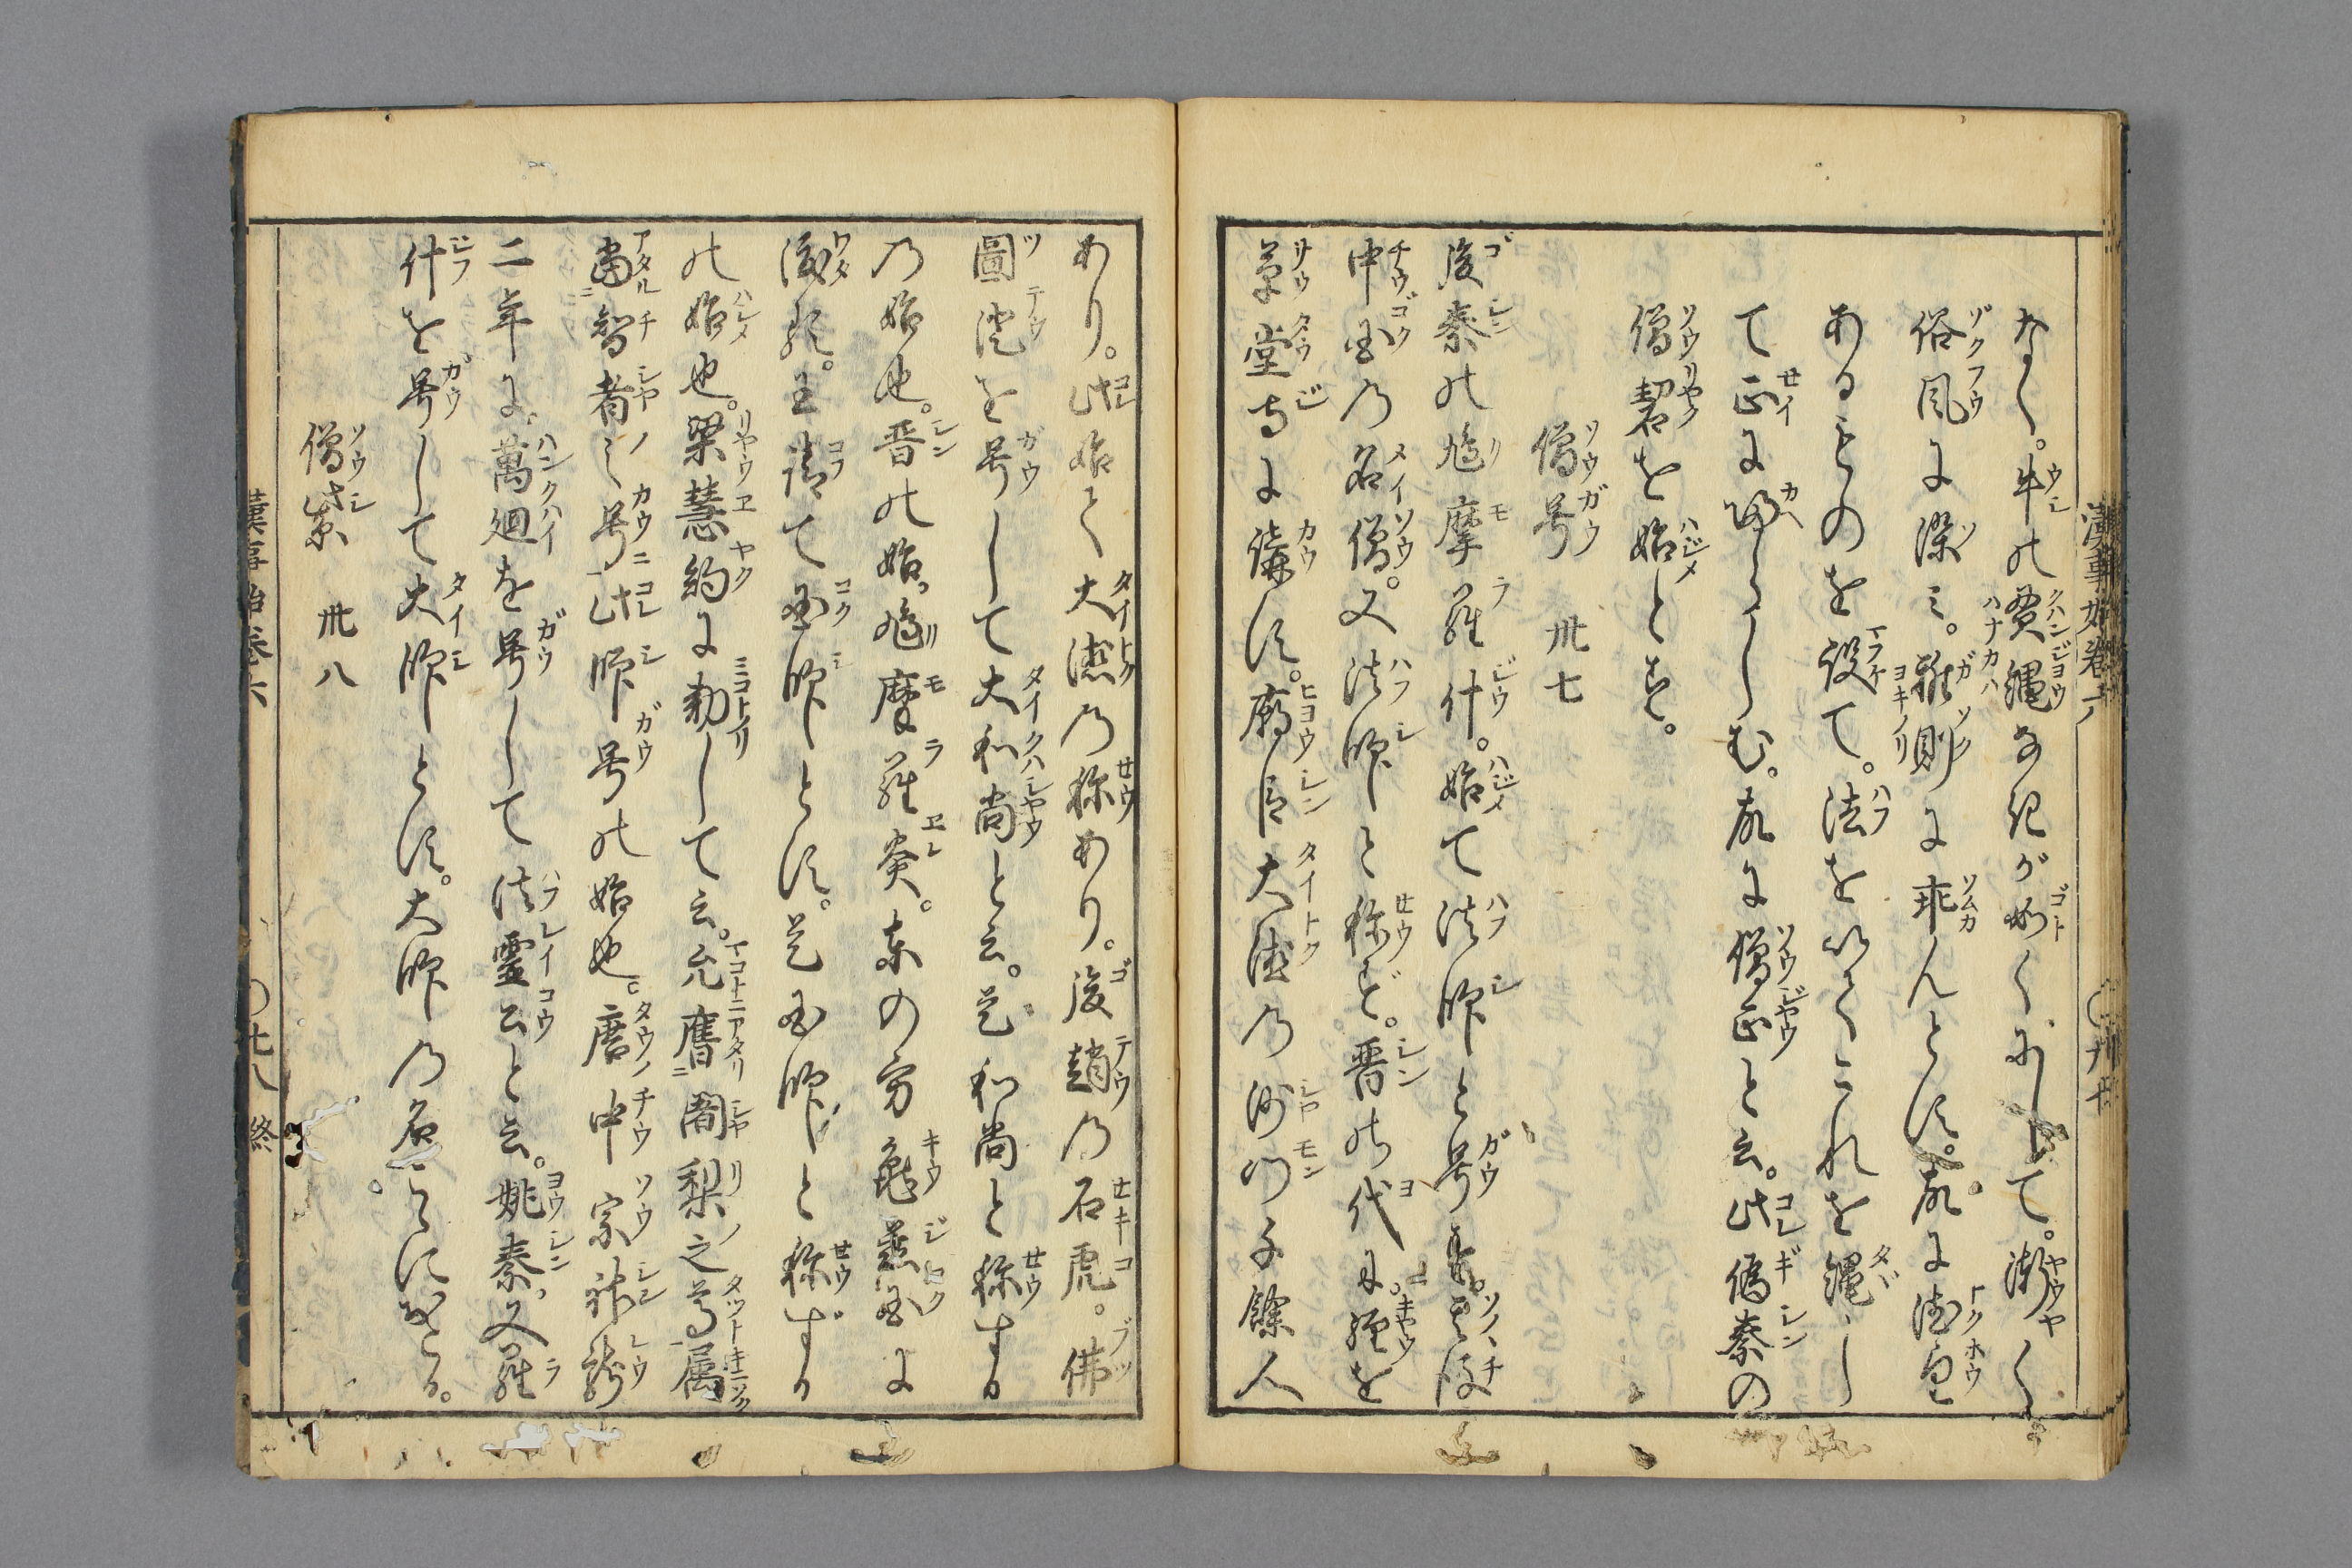 なく。牛の貫縄なきが如くにして。漸く
俗風に染ミ。雅則に乖んとす。故に徳望
あるものを設て。法を以てこれを縄し
て正に帰らしむ。故に僧正と云。此偽秦の
僧䂮を始とす。
僧号 卅七
後秦の鳩摩羅什。始て法師と号す。其後
中国の名僧。又法師と称ず。晋の代に。経を
草堂寺に講ず。廟臣大徳の沙門。千餘人
あり。此始て大徳の称あり。後趙の石虎。佛
圖澄を号して大和尚と云。是和尚と称する
の始也。晋の始。鳩摩羅炎。東の方龜茲国に
渡る。王請て国師とす。是国師と称する
の始也。梁慧約に勅して云。允膺闍梨之尊属
當智者之号此師号の始也。唐中宗神龍
二年に。萬廻を号して法霊公と云。姚秦。又羅
什を号して大師とす。大師の名こゝにおこる。
僧紫 卅八
漢事始巻六
漢事始巻六 〇廿八終